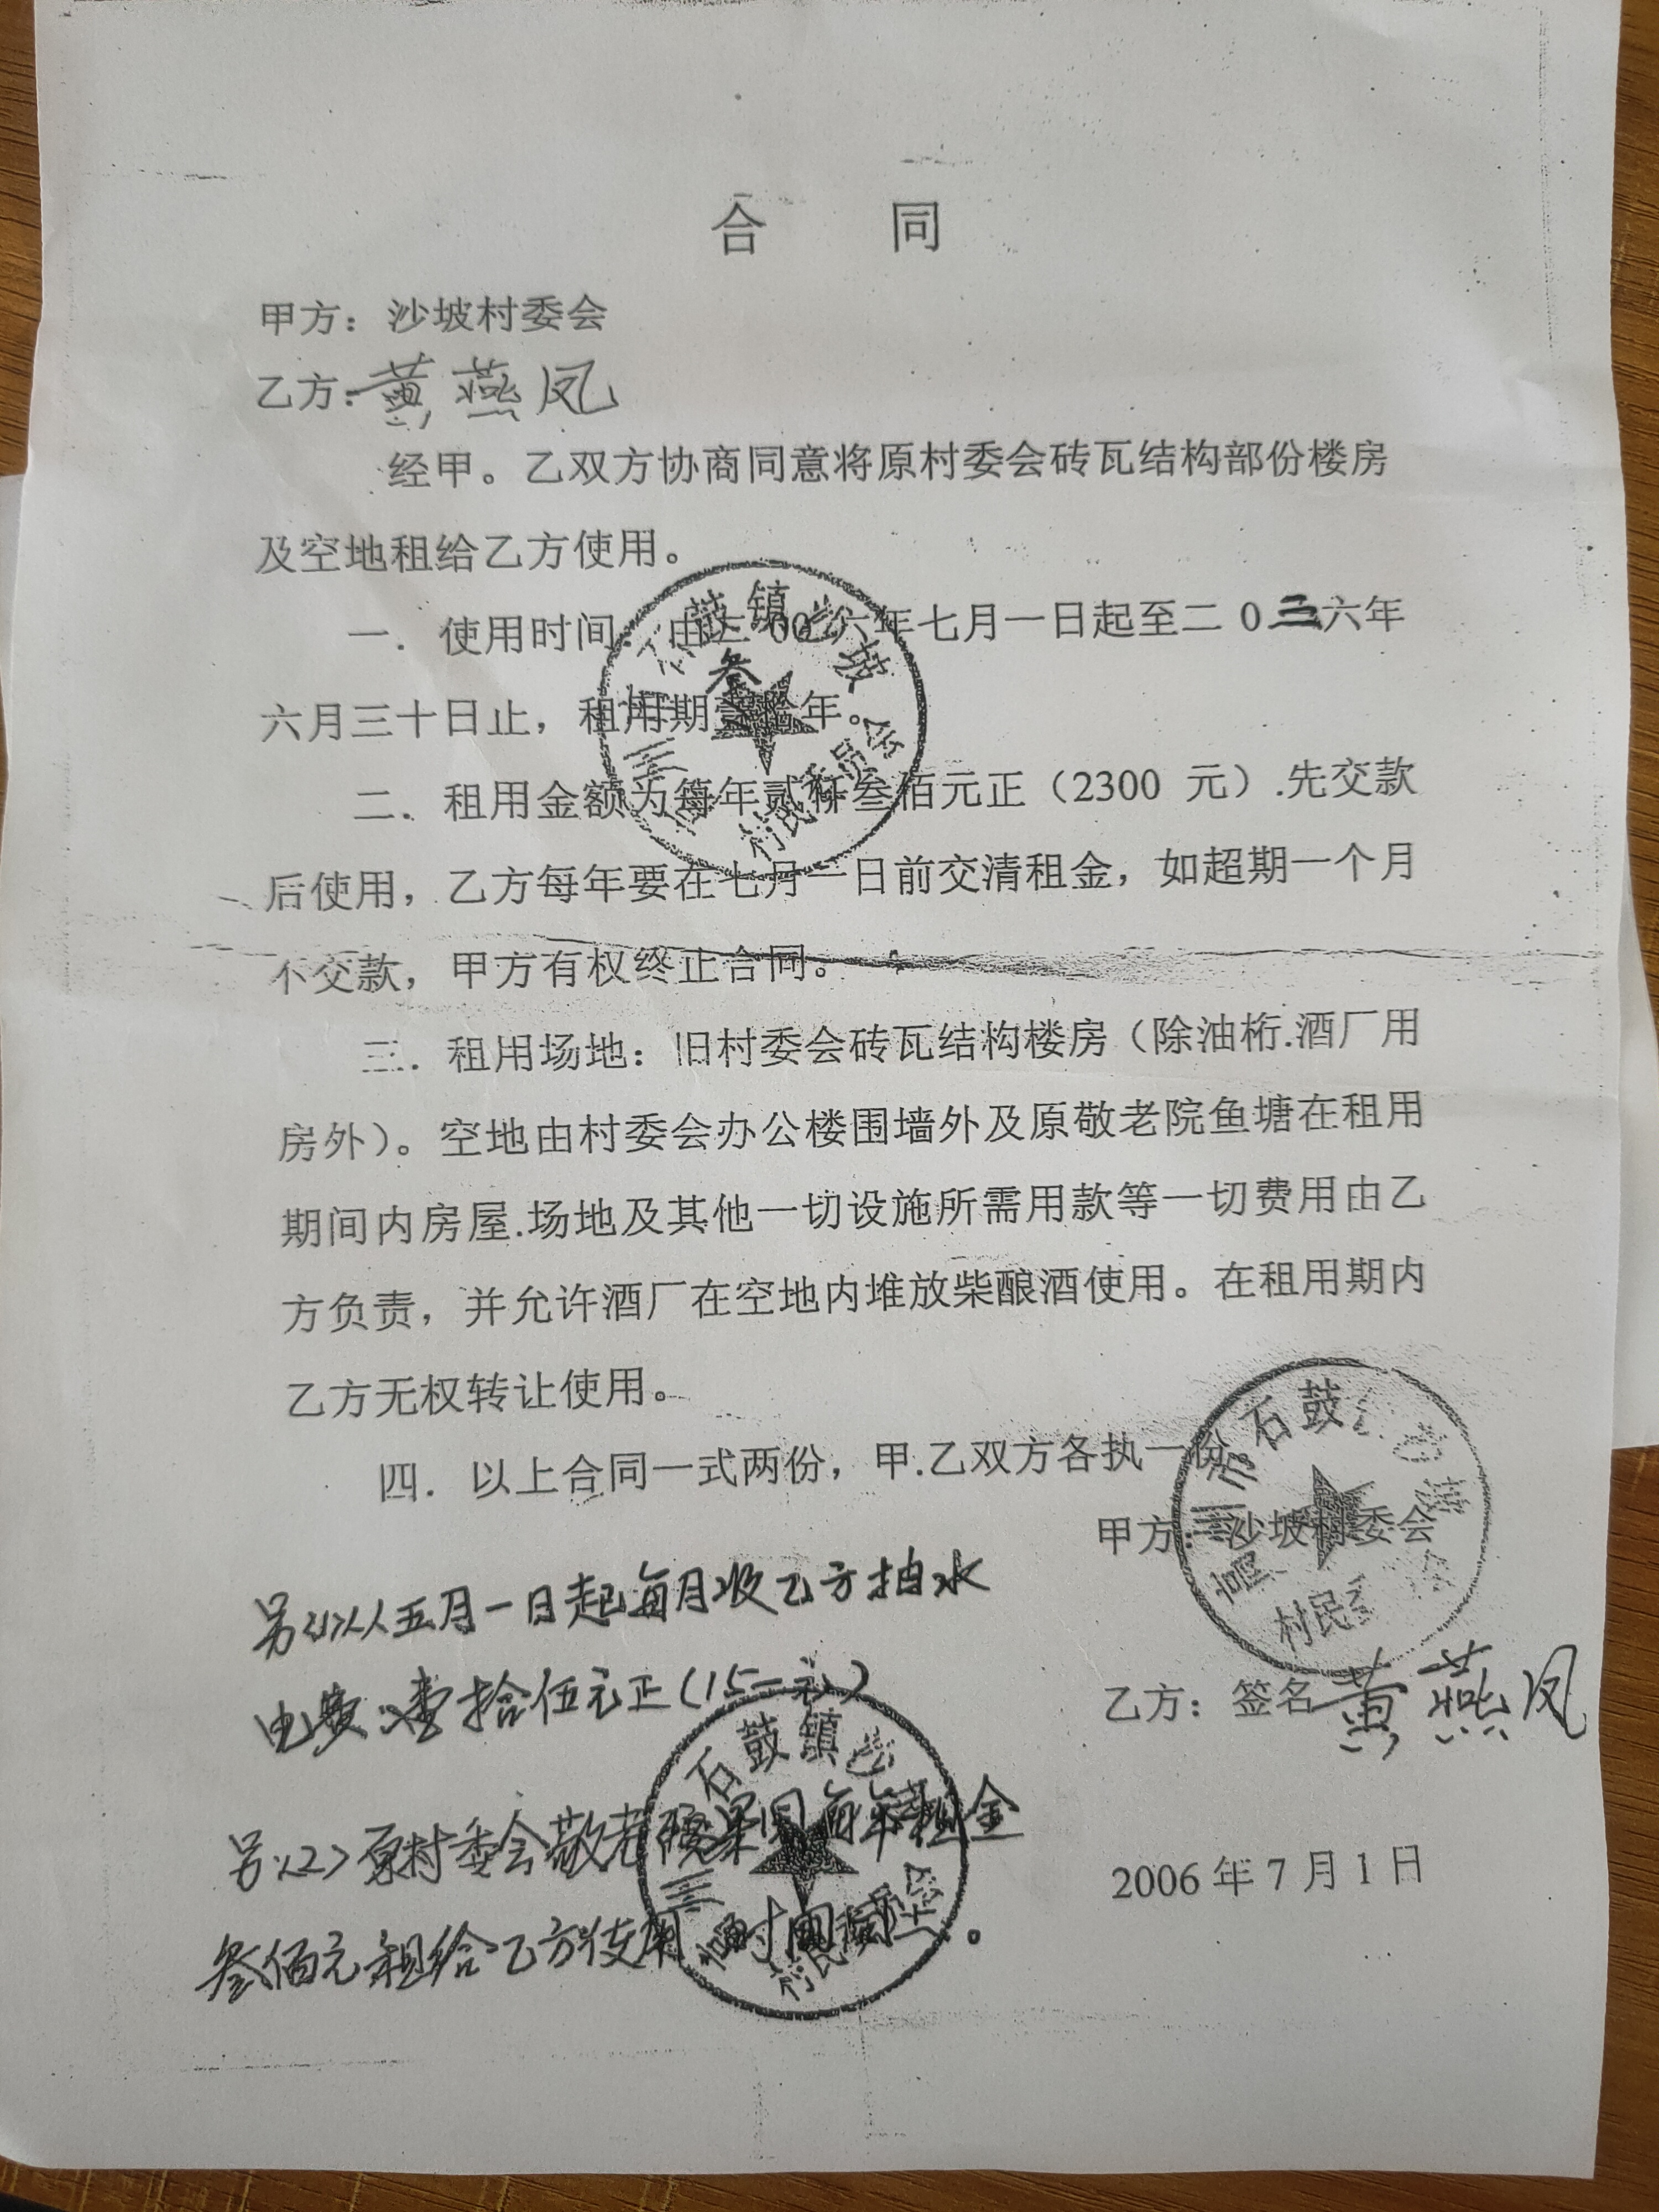 合 同
甲方：沙坡村委会
乙方：黄燕凤
经甲。乙双方协商同意将原村委会砖瓦结构部份楼房
及空地租给乙方使用。
一．使用时间：由二00六年七月一日起至二0三六年
叁
六月三十日止，租用期拾年。
二．租用金额为每年贰仟叁佰元正（2300 元）.先交款
后使用，乙方每年要在七月一日前交清租金，如超期一个月
不交款，甲方有权终止合同。
三．租用场地：旧村委会砖瓦结构楼房（除油桁.酒厂用
房外）。空地由村委会办公楼围墙外及原敬老院鱼塘在租用
期间内房屋.场地及其他一切设施所需用款等一切费用由乙
方负责，并允许酒厂在空地内堆放柴酿酒使用。在租用期内
乙方无权转让使用。
四．以上合同一式两份，甲.乙双方各执一份。
甲方：沙坡村委会
另(1)从五月一日起每月收乙方抽水
电费：壹拾伍元正(15一元)
乙方：签名黄燕凤
另(2)原村委会敬老院果园每年租金
叁佰元租给乙方使用 时间同上。
2006 年 7 月 1 日
石鼓镇沙坡
村民委员会
石鼓
村民
石鼓镇
村民